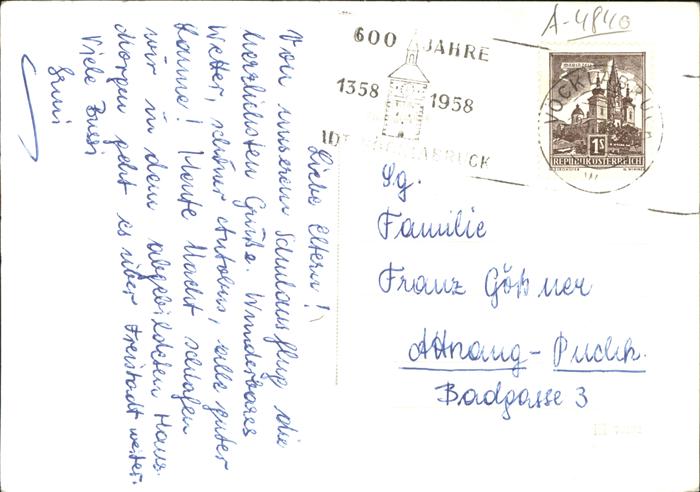 A-4840
600 JAHRE
1358 1958
VÖCKLABRUCK
MARIAZELL
1S
REPUBLIK ÖSTERREICH
Liebe Eltern!
Von unserem Schulausflug die
herzlichsten Grüße. Wunderbares
Wetter, schöner Autobus, alle guter
Laune! Heute Nacht schlafen
wir in dem abgebildeten Haus.
Morgen geht es über Freistadt weiter.
Viele Bussi
Sg.
Familie
Franz Gößner
Attnang-Puchh.
Badgasse 3